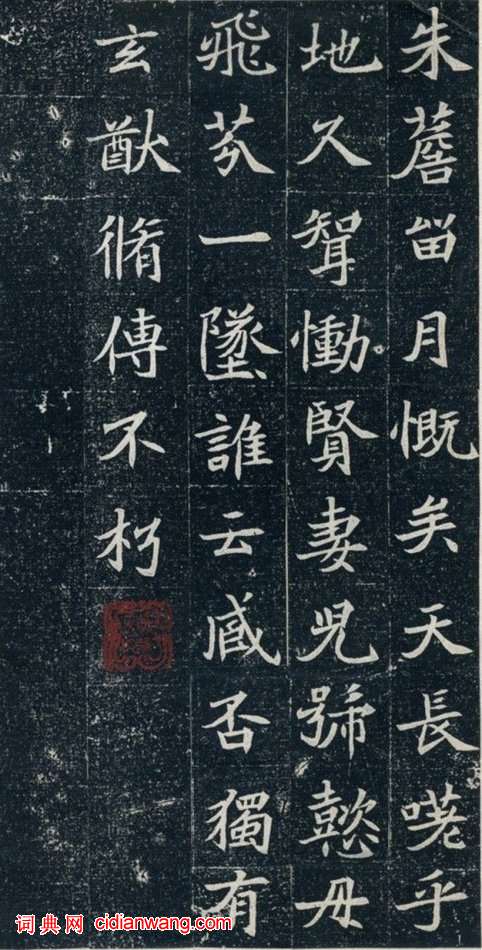 朱簷留月慨矣天長嗟乎
地久聟慟賢妻兒號懿母
飛芬一墜誰云臧否獨有
玄猷脩傳不朽
词典网 cidianwang.com